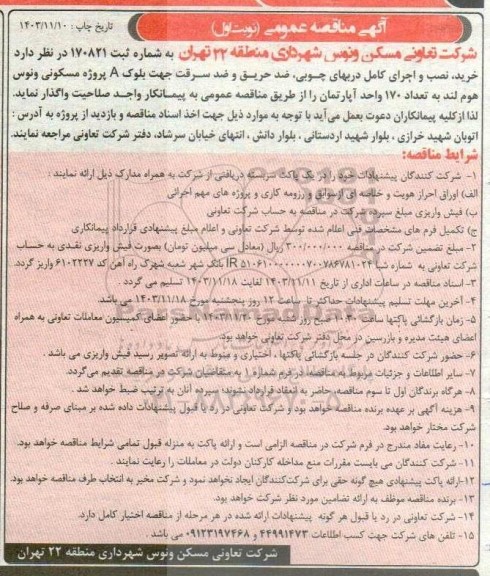 آگهی مناقصه عمومی (نوبت اول)
تاریخ چاپ : ۱۴۰۳/۱۱/۱۰
شرکت تعاونی مسکن ونوس شهرداری منطقه ۲۲ تهران به شماره ثبت ۱۷۰۸۲۱ در نظر دارد
خرید، نصب و اجرای کامل دربهای چوبی، ضد حریق و ضد سرقت جهت بلوک A پروژه مسکونی ونوس
هوم لند به تعداد ۱۷۰ واحد آپارتمان را از طریق مناقصه عمومی به پیمانکار واجد صلاحیت واگذار نماید.
لذا از کلیه پیمانکاران دعوت بعمل می‌آید با توجه به موارد ذیل جهت اخذ اسناد مناقصه و بازدید از پروژه به آدرس :
اتوبان شهید خرازی ، بلوار شهید اردستانی ، بلوار دانش ، انتهای خیابان سرشاد، دفتر شرکت تعاونی مراجعه نمایند.
شرایط مناقصه:
۱- شرکت کنندگان پیشنهادات خود را در یک پاکت سربسته دریافتی از شرکت به همراه مدارک ذیل ارائه نمایند :
الف) اوراق احراز هویت و خلاصه ای از سوابق و رزومه کاری و پروژه های مهم اجرائی
ب) فیش واریزی مبلغ سپرده شرکت در مناقصه به حساب شرکت تعاونی
ج) تکمیل فرم های مشخصات فنی اعلام شده توسط شرکت تعاونی و اعلام مبلغ پیشنهادی قرارداد پیمانکاری
۲- مبلغ تضمین شرکت در مناقصه ۳۰۰/۰۰۰/۰۰۰ ریال (معادل سی میلیون تومان) بصورت فیش واریزی نقدی به حساب
شرکت تعاونی به شماره شبا IR بانک شهر شعبه شهرک راه آهن کد ۶۱۰۲۲۳۷ واریز گردد.
۳- اسناد مناقصه در ساعات اداری از تاریخ ۱۴۰۳/۱۱/۱۱ لغایت ۱۴۰۳/۱۱/۱۸ تسلیم می گردد .
۴- آخرین مهلت تسلیم پیشنهادات حداکثر تا ساعت ۱۲ روز پنجشنبه مورخ ۱۴۰۳/۱۱/۱۸ می باشد .
۵- زمان بازگشائی پاکتها ساعت صبح روز شنبه مورخ ۱۴۰۳/۱۱/۲۰ با حضور اعضای کمیسیون معاملات تعاونی به همراه
اعضای هیئت مدیره و بازرسین در محل دفتر شرکت تعاونی خواهد بود.
۶- حضور شرکت کنندگان در جلسه بازگشائی پاکتها ، اختیاری و منوط به ارائه تصویر رسید فیش واریزی می باشد .
۷- سایر اطلاعات و جزئیات مربوط به مناقصه در فرم شماره ۱ به متقاضیان شرکت در مناقصه تقدیم می‌گردد.
۸- هرگاه برندگان اول تا سوم مناقصه، حاضر به انعقاد قرارداد نشوند؛ سپرده آنان به ترتیب ضبط خواهد شد .
۹- هزینه آگهی بر عهده برنده مناقصه خواهد بود و شرکت تعاونی در رد یا قبول پیشنهادات داده شده بر مبنای صرفه و صلاح
شرکت مختار خواهد بود.
۱۰- رعایت مفاد مندرج در فرم شرکت در مناقصه الزامی است و ارائه پاکت به منزله قبول تمامی شرایط مناقصه خواهد بود.
۱۱- شرکت کنندگان می بایست مقررات منع مداخله کارکنان دولت در معاملات را رعایت نمایند .
۱۲-ارائه پاکت پیشنهادی هیچ گونه حقی برای شرکت‌کنندگان ایجاد نخواهد نمود و شرکت مخیر به انتخاب طرف مناقصه خواهد بود.
۱۳- برنده مناقصه موظف به ارائه تضامین مورد نظر شرکت خواهد بود.
۱۴- شرکت تعاونی در رد یا قبول هر گونه پیشنهادات ارائه شده در هر مرحله از مناقصه اختیار کامل دارد.
۱۵- تلفن های شرکت جهت کسب اطلاعات ۴۴۹۹۱۴۷۳ و ۰۹۱۲۳۱۹۷۴۶۸ می باشد .
شرکت تعاونی مسکن ونوس شهرداری منطقه ۲۲ تهران